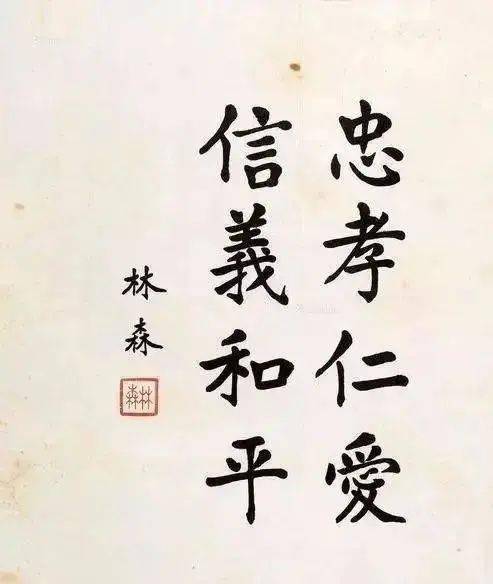 忠孝仁愛
信義和平
林森
林森